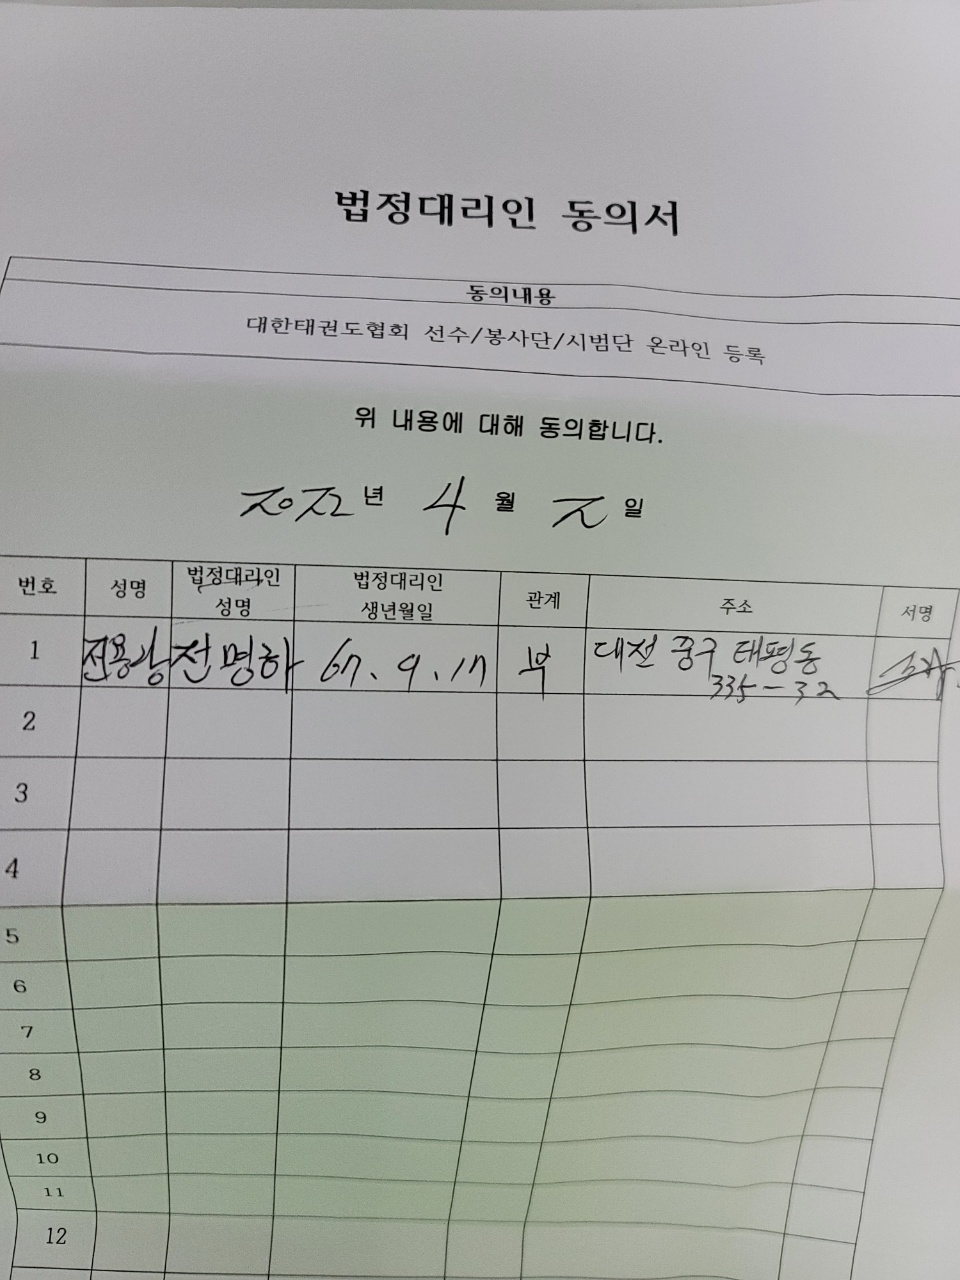 법정대리인 동의서
동의내용
대한태권도협회 선수/봉사단/시범단 온라인 등록
위 내용에 대해 동의합니다.
2022년 4월 2일
번호 성명 법정대리인 성명 법정대리인 생년월일 관계 주소 서명
1 전용광 전명하 67. 9. 17 부 대전 중구 태평동
335-32
2
3
4
5
6
7
8
9
10
11
12